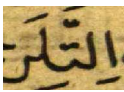 اِلتَّلَر